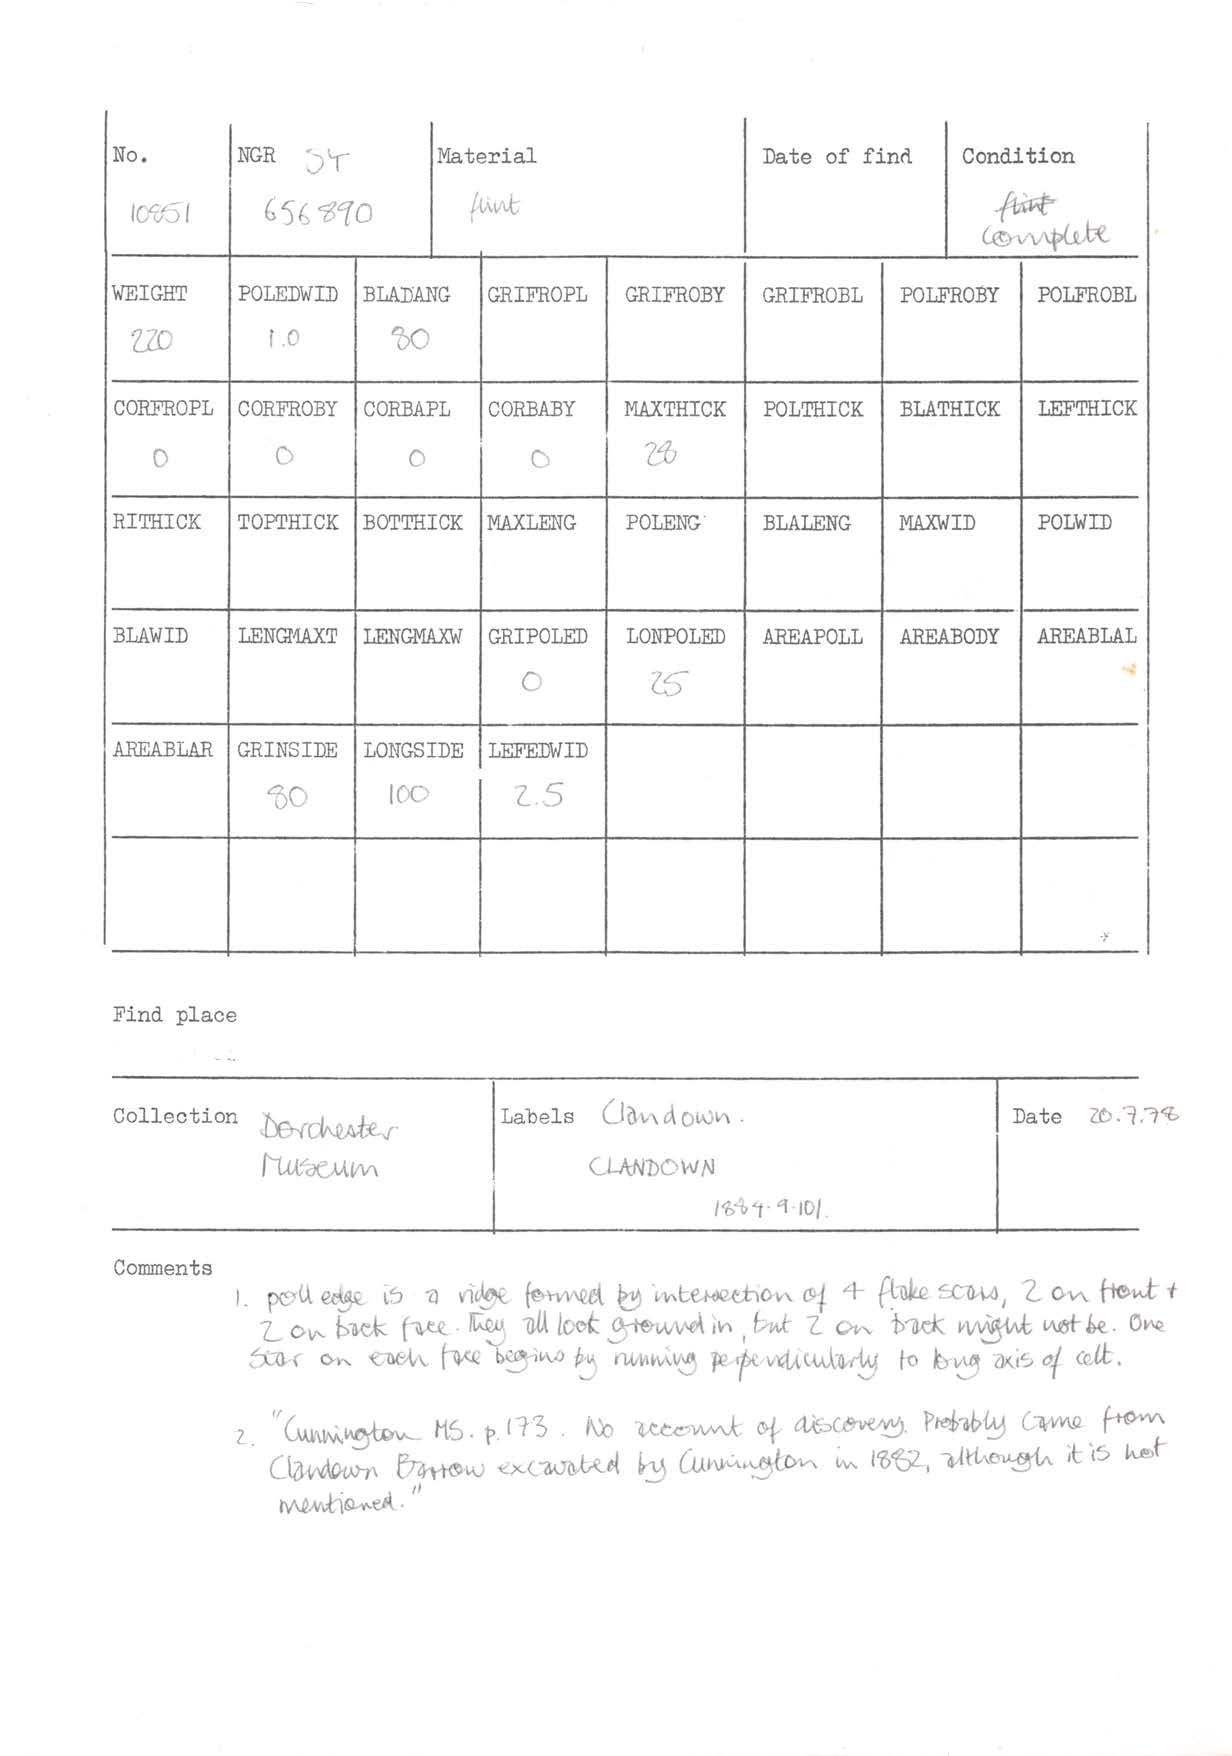 No. NGR ST Material Date of find Condition
10851 656890 flint flint
complete
WEIGHT POLEDWID BLADANG GRIFROPL GRIFROBY GRIFROBL POLFROBY POLFROBL
220 1.0 80
CORFROPL CORFROBY CORBAPL CORBABY MAXTHICK POLTHICK BLATHICK LEFTHICK
0 0 0 0 28
RITHICK TOPTHICK BOTTHICK MAXLENG POLENG BLALENG MAXWID POLWID
BLAWID LENGMAXT LENGMAXW GRIPOLED LONPOLED AREAPOLL AREABODY AREABLAL
0 25
AREABLAR GRINSIDE LONGSIDE LEFEDWID
80 100 2.5
Find place
Collection Dorchester Labels Clandown. Date 20.7.78
Museum CLANDOWN
1884.9.101.
Comments
1. poll edge is a ridge formed by intersection of 4 flake scars, 2 on front +
2 on back face. They all look ground in, but 2 on back might not be. One
scar on each face begins by running perpendicularly to long axis of celt.
2. "Cunnington MS. p.173. No account of discovery. Probably came from
Clandown Barrow excavated by Cunnington in 1882, although it is not
mentioned."